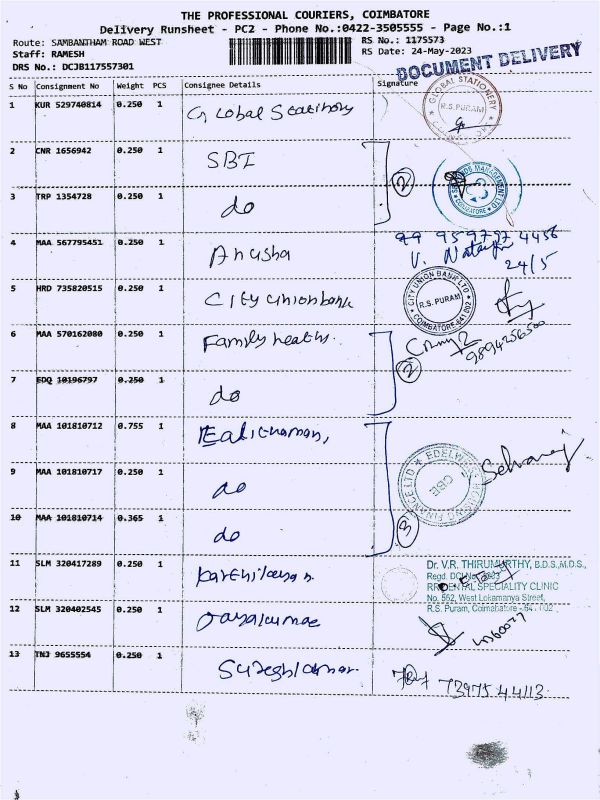 THE PROFESSIONAL COURIERS, COIMBATORE
Delivery Runsheet - PC2 - Phone No.:0422-3505555 - Page No.:1
Route: SAMBANTHAM ROAD WEST
RS No.: 1175573
Staff: RAMESH
RS Date: 24-May-2023
DRS No.: DCJB117557301
DOCUMENT DELIVERY
S No Consignment No Weight PCS Consignee Details Signature
1 KUR 529740814 0.250 1 Global Stationory
GLOBAL STATIONERY
R.S.PURAM
2 CNR 1656942 0.250 1 SBI
2
3 TRP 1354728 0.250 1 do
COIMBATORE
4 MAA 567795451 0.250 1 Anusha
V. Nataraj
24/5
5 HRD 735820515 0.250 1 City union bank
CITY UNION BANK LTD
R.S. PURAM
COIMBATORE 641 002
6 MAA 570162080 0.250 1 Family health.
9894256500
2
7 EDQ 10196797 0.250 1 do
8 MAA 101810712 0.755 1
EDELWEISS HOUSING FINANCE LTD
CBE
Selvaraj
9 MAA 101810717 0.250 1 do
10 MAA 101810714 0.365 1 do
3
11 SLM 320417289 0.250 1
Dr. V.R. THIRUMURTHY, B.D.S.,M.D.S.,
Regd. DCI No.
RR DENTAL SPECIALITY CLINIC
No. 552, West Lokamanya Street,
R.S. Puram, Coimbatore - 641 002
12 SLM 320402545 0.250 1 Jayakumar
13 TNJ 9655554 0.250 1 Sureshkumar
73975 44113